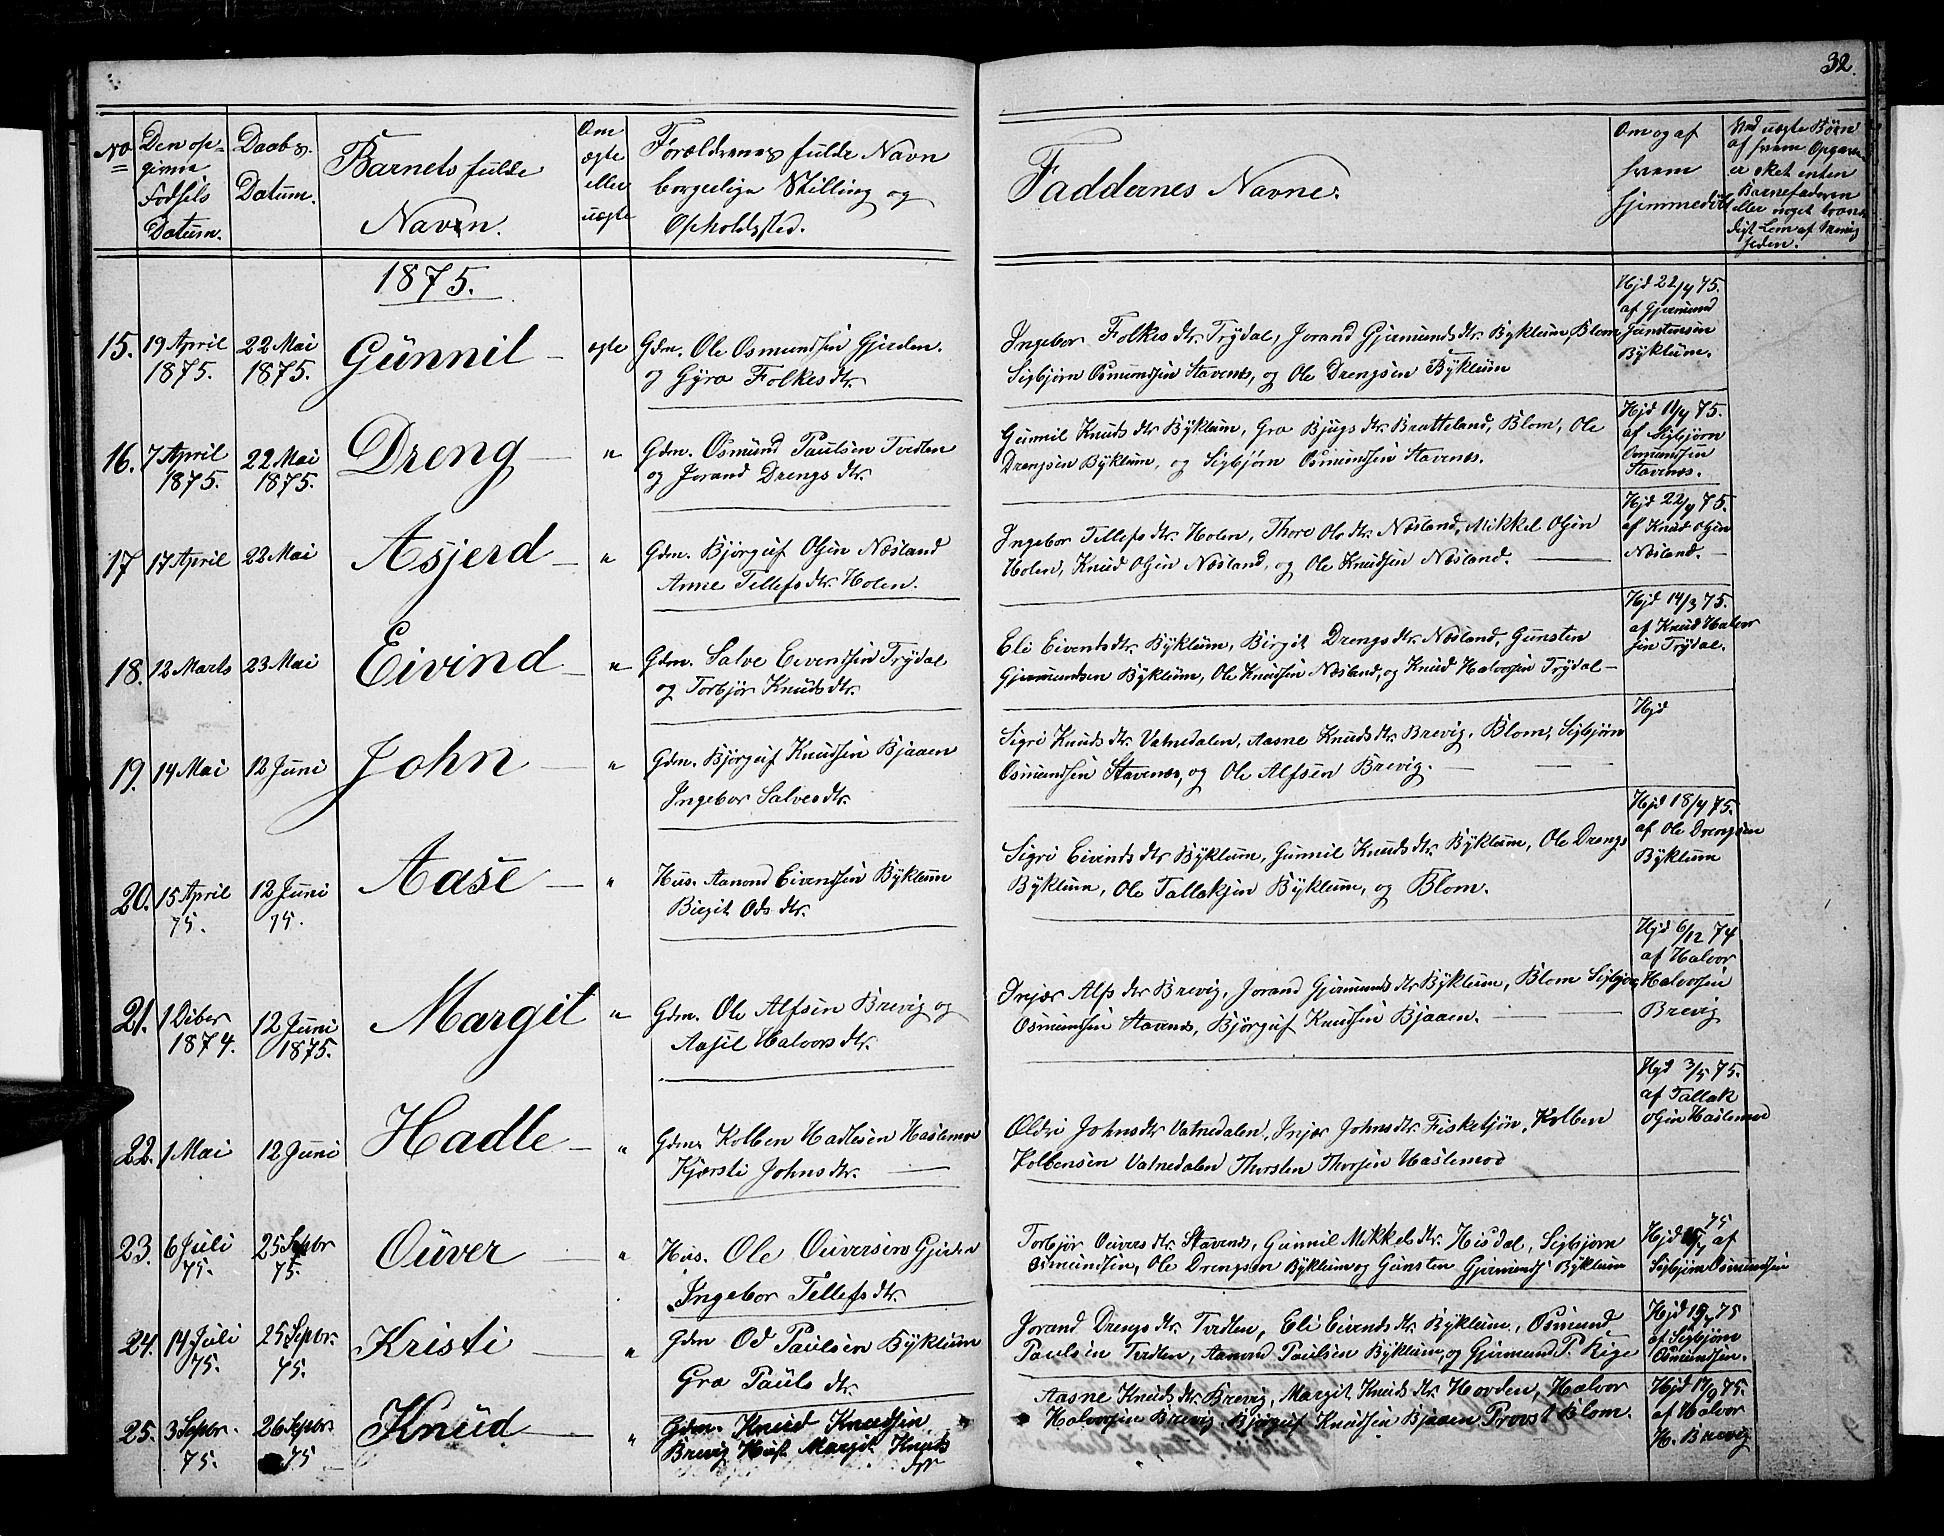 32.
No
Den op-
givne
Fødsels
Datum.
Daabs.
Datum.
Barnets fulde
Navn.
Om
ægte
eller
uægte
Forældrenes fulde Navn
borgerlige Stilling og
Opholdssted.
Faddernes Navne.
Om og af
hvem
hjemmedøbt
Ved uægte Børn
af hvem Opgaven
er sket enten
Barnefaderen
eller noget
Lem af
1875.
15. 19 April 1875. 22 Mai 1875. Gunnil — ægte Gdm. Ole Osmundsen Gjerden.
og Gyro Folkesdtr.
Ingebor Folkesdtr. Trydal, Jorand Gjermundsdtr. Byklum, Blom
Sigbjørn Osmundsen Stavenes, og Ole Drengsen Byklum
Hjd 22/4 75.
af Gjermund
Gunstensen
Byklum.
16. 7 April 1875. 22 Mai 1875. Dreng — " Gdm. Osmund Paulsen Tveten
og Jorand Drengsdtr.
Gunnil Knudsdtr Byklum, Gro Bjugsdtr. Bratteland, Blom, Ole
Drengsen Byklum, og Sigbjørn Osmundsen Stavenes.
Hjd 11/4 75.
af Sigbjørn
Osmundsen
Stavenes.
17 17 April 22 Mai Asjerd — " Gdm. Bjørguf Olsen Næsland
Anne Tellefsdtr. Holen.
Ingebor Tellefsdtr. Holen, Thore Olsdtr. Næsland, Mikkel Olsen
Holen, Knud Olsen Næsland, og Ole Knudsen Næsland. —
Hjd 22/4 75.
af Knud Olsen
Næsland. —
18. 12 Marts 23 Mai Eivind — " Gdm. Salve Eivendsen Trydal
og Torbjør Knudsdtr.
Eli Eivendsdtr. Byklum, Birgit Drengsdtr. Næsland, Gunsten
Gjermundsen Byklum, Ole Knudsen Næsland, og Knud Halvorsen Trydal —
Hjd 14/3 75.
af Knud Halvor
sen Trydal.
19. 14 Mai 12 Juni John — " Gdm. Bjørguf Knudsen Bjaaen
Ingebor Salvesdtr.
Sigri Knudsdtr. Vatnedalen, Aasne Knudsdtr. Brevig, Blom, Sigbjørn
Osmundsen Stavenes, og Ole Alfsen Brevig. — —
Hjd
20. 15 April 75. 12 Juni 75. Aase — " Hus. Aamond Eivendsen Byklum
Birgit Odsdtr.
Sigri Eivindsdtr Byklum, Gunnil Knudsdtr. Byklum, Ole Drengs
Byklum, Ole Tallaksen Byklum, og Blom.
Hjd 18/4 75.
af Ole Drengsen
Byklum
21. 1 Dcber 1874. 12 Juni 1875. Margit " Gdm. Ole Alfsen Brevig og
Aasil Halvorsdtr.
Injær Alfsdtr Brevig, Jorand Gjermundsdtr Byklum, Blom Sigbjørn
Osmundsen Stavenes, Bjørguf Knudsen Bjaaen. — —
Hjd 6/12 74
af Halvor
Halvorsen
Brevig
22. 1 Mai 12 Juni Hadle — " Gdm. Kolben Hadlesen Haslemo
Kjersti Johnsdtr. —
Oldri Johnsdtr Vatnedalen, Injær Johnsdtr. Fisketjøn, Kolben
Kolbensen Vatnedalen Thorsten Thorsen Haslemod
Hjd 3/5 75.
af Tallak
Olsen Haslemod
23. 6 Juli 75. 25 Sepbr 75. Ouver — " Hus. Ole Ouversen Gjerden
Ingebor Tellefsdtr.
Torbjør Ouversdtr. Stavenes, Gunnil Mikkelsdtr. Hisdal, Sigbjørn
Osmundsen, Ole Drengsen Byklum og Gunsten Gjermunds Byklum
Hjd 75 af
Sigbjørn Osmundsen
24. 14 Juli 75. 25 Sepbr. 75. Kristi — " Gdm Od Paulsen Byklum
Gro Paulsdtr.
Jorand Drengsdtr. Tveten, Eli Eivendsdtr. Byklum, Osmund
Paulsen Tveten, Aamond Paulsen Byklum, og Gjermund P. Rige
Hjd 19/7 75
af Sigbjørn
Osmundsen.
25. 3 Sepbr. 75. 26 Sepbr 75 Knud — " Gdm. Knud Knudsen
Brevig Hust. Margit Knuds
dtr
Aasne Knudsdtr. Brevig, Margit Knudsdtr. Hovden, Halvor
Halvorsen Brevig, Bjørguf Knudsen Bjaaen Provst Blom.
Hjd 17/9 75.
af Halvor
H. Brevig